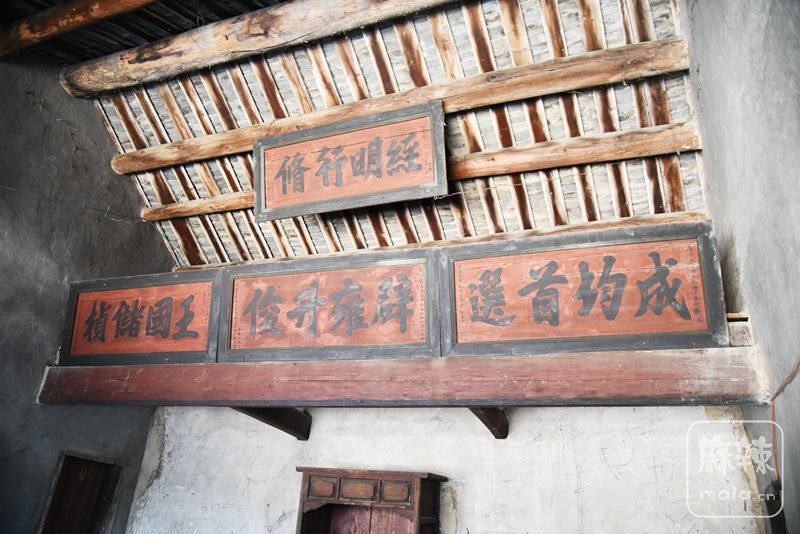 經明行脩
成均首選
辟雍升俊
王國儲楨
麻辣
mala.cn